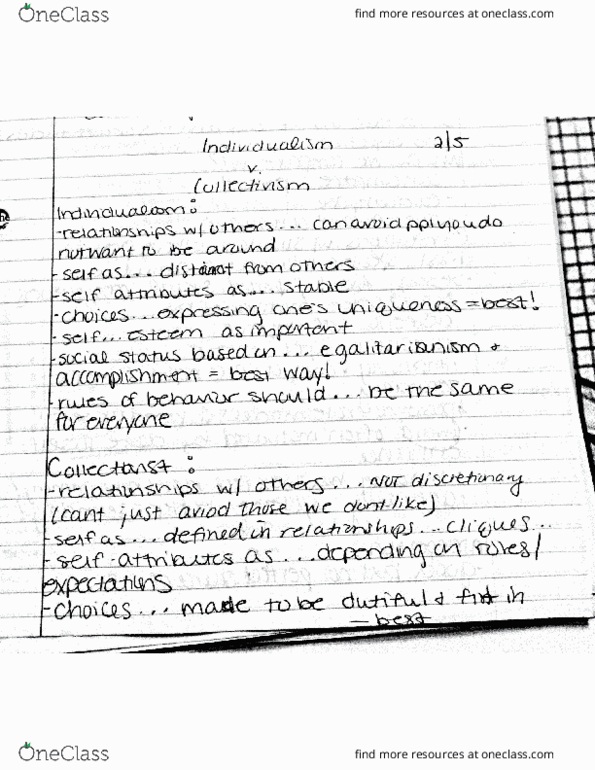 OneClass
find more resources at oneclass.com
Individualism 2/5
v.
Collectivism
Individualism:
-relationships w/ others... can avoid ppl you do
not want to be around
-self as... distinct from others
-self attributes as... stable
-choices... expressing one's uniqueness = best!
-self... esteem as important
-social status based on... egalitarianism +
accomplishment = best way!
-rules of behavior should... be the same
for everyone
Collectanist:
-relationships w/ others... NOT discretionary
(cant just aviod those we dont like)
-self as... defined in relationships... cliques...
-self-attributes as... depending on roles/
expectations
-choices... made to be dutiful + fit in
- best
OneClass
find more resources at oneclass.com